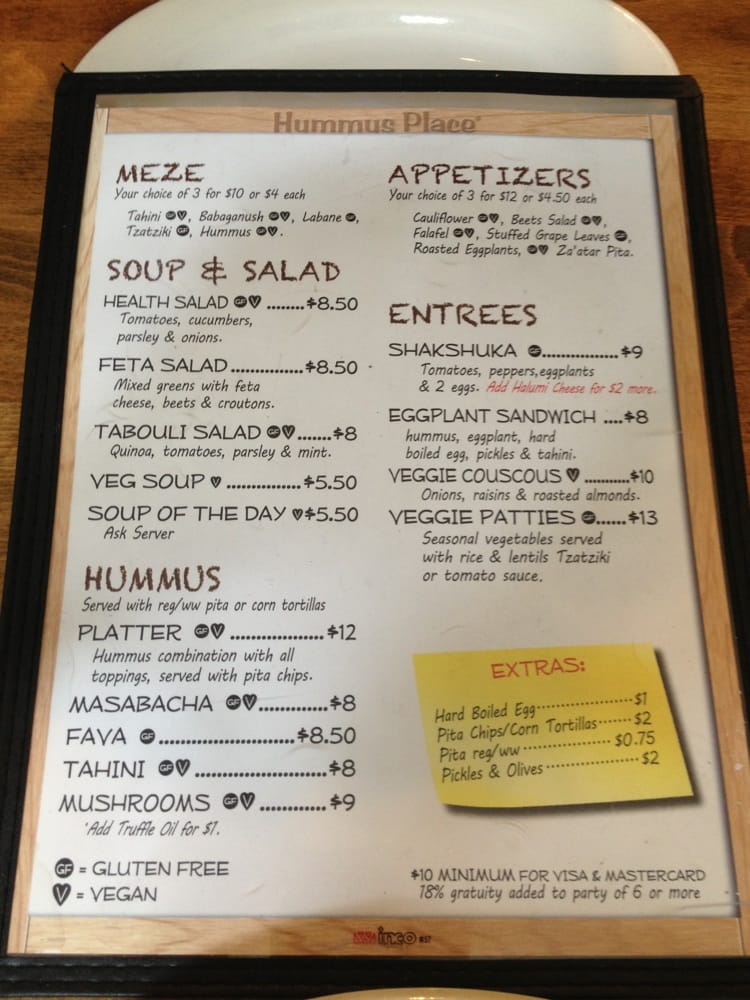 Hummus Place
MEZE
Your choice of 3 for $10 or $4 each
Tahini GF V, Babaganush GF V, Labane GF,
Tzatziki GF, Hummus GF V.
SOUP & SALAD
HEALTH SALAD GF V ........$8.50
Tomatoes, cucumbers,
parsley & onions.
FETA SALAD...............$8.50
Mixed greens with feta
cheese, beets & croutons.
TABOULI SALAD GF V.......$8
Quinoa, tomatoes, parsley & mint.
VEG SOUP V ................$5.50
SOUP OF THE DAY V $5.50
Ask Server
HUMMUS
Served with reg/ww pita or corn tortillas
PLATTER GF V ....................$12
Hummus combination with all
toppings, served with pita chips.
MASABACHA GF V..............$8
FAVA GF............................$8.50
TAHINI GF V .......................$8
MUSHROOMS GF V ..............$9
*Add Truffle Oil for $1.
GF = GLUTEN FREE
V = VEGAN
APPETIZERS
Your choice of 3 for $12 or $4.50 each
Cauliflower GF V, Beets Salad GF V,
Falafel GF V, Stuffed Grape Leaves GF,
Roasted Eggplants, GF V Za'atar Pita.
ENTREES
SHAKSHUKA GF..................$9
Tomatoes, peppers,eggplants
& 2 eggs. Add Halumi Cheese for $2 more.
EGGPLANT SANDWICH ....$8
hummus, eggplant, hard
boiled egg, pickles & tahini.
VEGGIE COUSCOUS V ...........$10
Onions, raisins & roasted almonds.
VEGGIE PATTIES GF......$13
Seasonal vegetables served
with rice & lentils Tzatziki
or tomato sauce.
EXTRAS:
Hard Boiled Egg....................$1
Pita Chips/Corn Tortillas.......$2
Pita reg/ww ..................$0.75
Pickles & Olives ..................$2
$10 MINIMUM FOR VISA & MASTERCARD
18% gratuity added to party of 6 or more